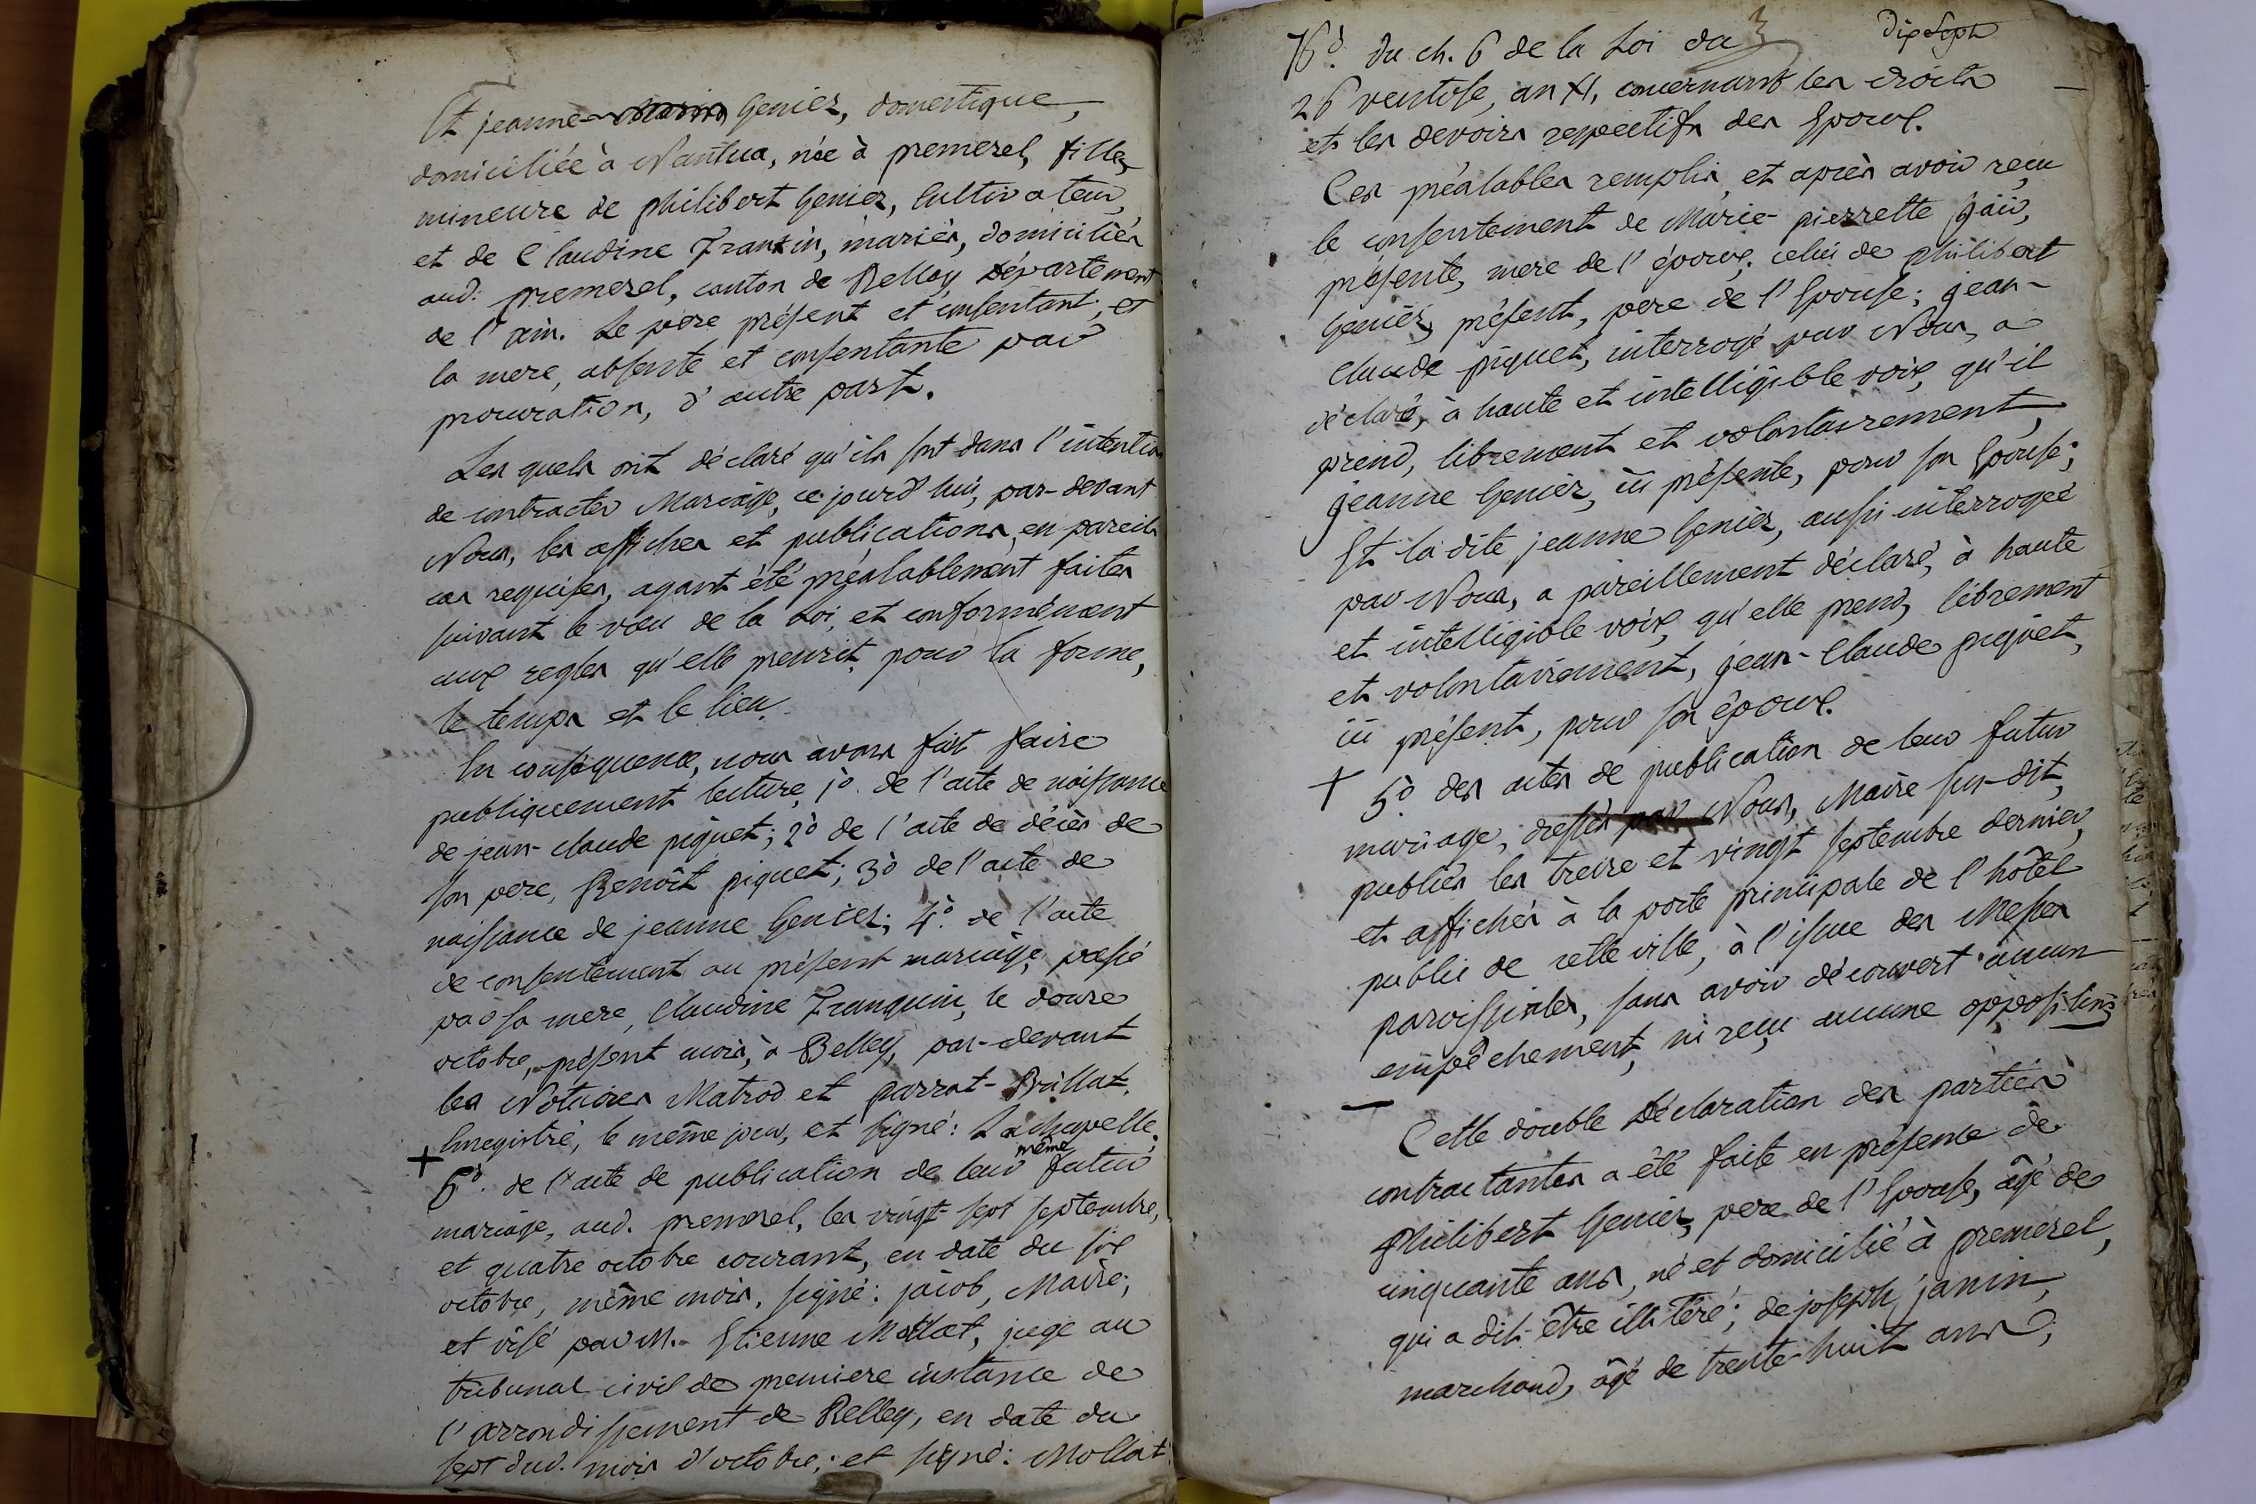 Et jeanne-marie Geniez, domestique,
domiciliée à Nantua, née à premezel, fille
mineure de philibert Geniez, Cultivateur,
et de Claudine Frantin, mariés, domiciliés
aud. premezel, canton de Belley, Département
de l'ain. Le pere présent et consentant, et
la mere, absente et consentante par
procuration, d'autre part.
Les quels ont déclaré qu'ils sont dans l'intention
de contracter Mariage, ce jourd'hui, par-devant
Nous, les affiches et publications, en pareils
cas requises, ayant été préalablement faites
suivant le vœu de la Loi, et conformément
aux regles qu'elle prescrit, pour la forme,
le temps et le lieu.
En conséquence, nous avons fait faire
publiquement lecture, 1º. de l'acte de naissance
de jean-claude piquet; 2º de l'acte de décès de
son pere, Benoît piquet; 3º de l'acte de
naissance de jeanne Geniez; 4º. de l'acte
de consentement au présent mariage, passé
par sa mere, Claudine Franquin, le douze
octobre, présent mois, à Belley, par-devant
les Notaires Matrod et parrat-Brillat.
Enregistré, le même jour, et signé: Lachapelle.
+
même
6º. de l'acte de publication de leur futur
mariage, aud. premezel, les vingt-sept septembre,
et quatre octobre courant, en date du six
octobre, même mois, signé: jacob, Maire;
et visé par M. Etienne Mollat, juge au
tribunal civil de premiere instance de
l'arrondissement de Belley, en date du
sept dud. mois d'octobre; et signé: Mollat.
dix Sept
3
7º. du ch. 6 de la Loi du
26 ventose, an XI, concernant les droits
et les devoirs respectifs des Epoux.
Ces préalables remplis, et après avoir reçu
le consentement de Marie-pierrette
présente, mere de l'époux; celui de philibert
Geniez, présent, pere de l'Epouse; jean-
claude piquet, interrogé par Nous, a
déclaré, à haute et intelligible voix, qu'il
prend, librement et volontairement,
jeanne Geniez, ici présente, pour son Epouse;
Et la dite jeanne Geniez, aussi interrogée
par Nous, a pareillement déclaré, à haute
et intelligible voix, qu'elle prend, librement
et volontairement, jean-Claude piquet,
ici présent, pour son époux.
+ 5º des actes de publication de leur futur
mariage, dressés par Nous, Maire sus-dit,
publiés les treize et vingt septembre dernier,
et affichés à la porte principale de l'hôtel
public de cette ville, à l'issue des Messes
paroissiales, sans avoir découvert aucun
empêchement, ni reçu aucune opposition
Cette double Déclaration des parties
contractantes a été faite en présence de
philibert Geniez, pere de l'Epouse, âgé de
cinquante ans, né et domicilié à premezel,
qui a dit être illitéré; de joseph janin,
marchand, âgé de trente huit ans;